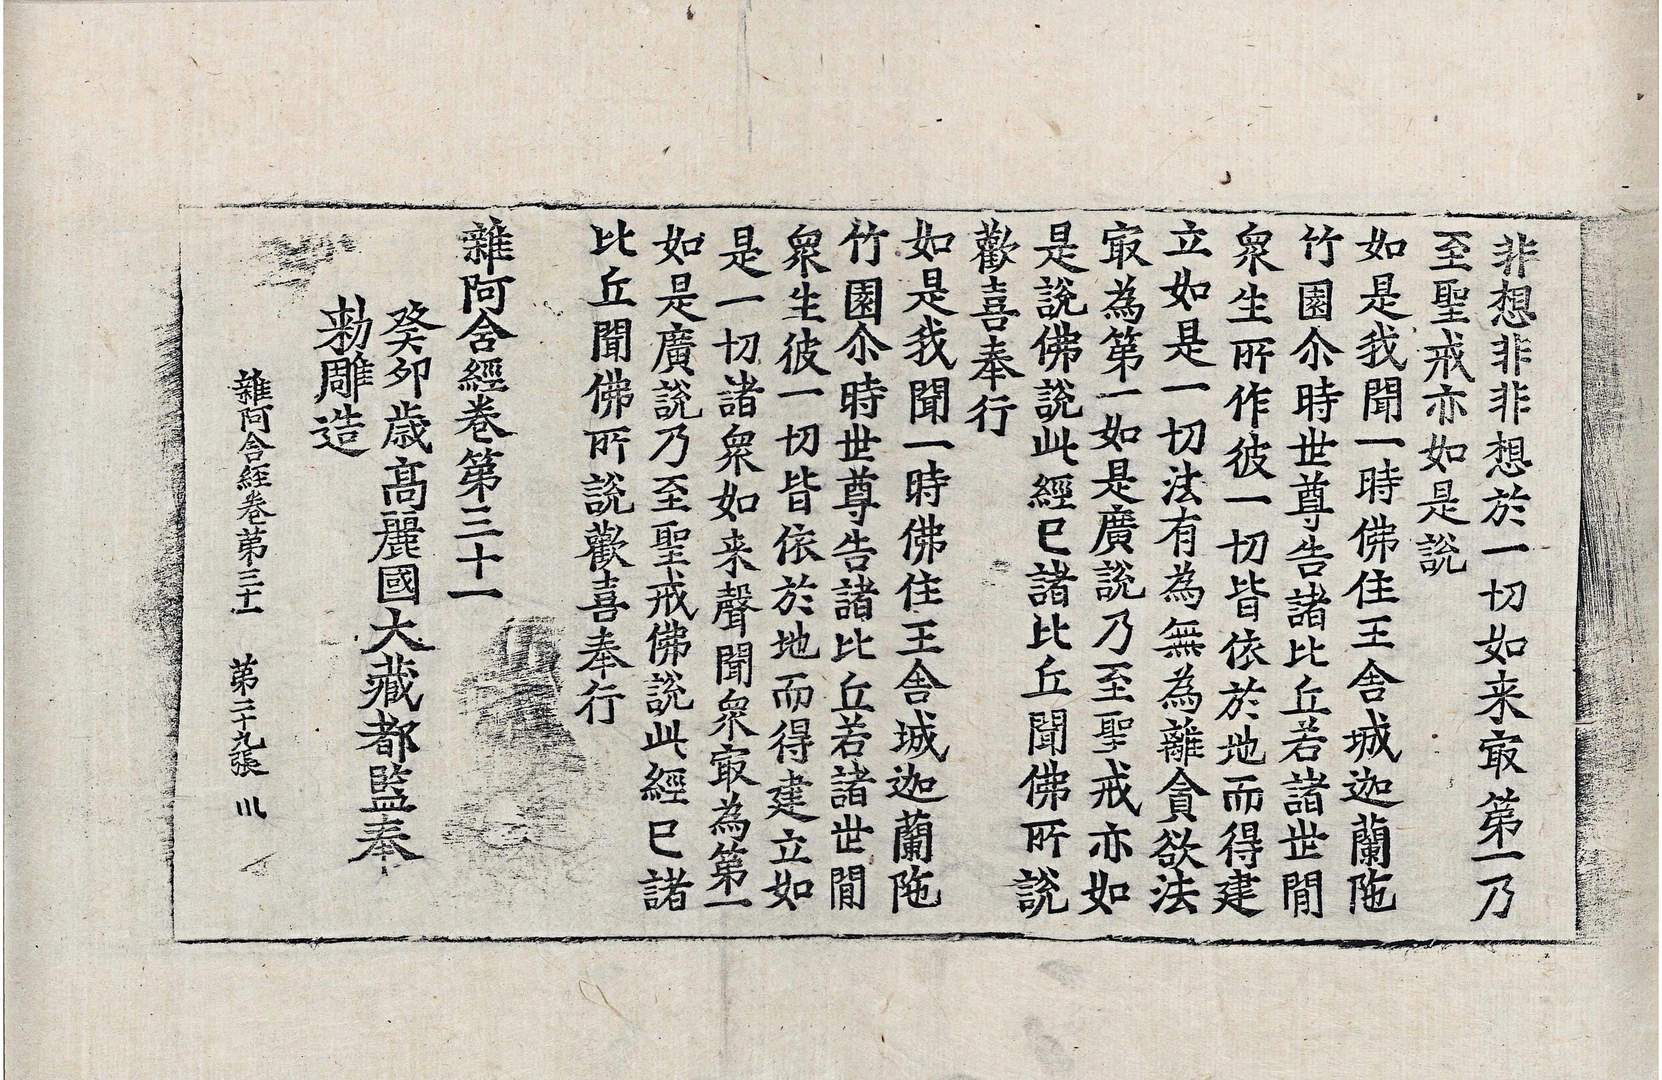 非想非非想於一切如来㝡第一乃
至聖戒亦如是說
如是我聞一時佛住王舍城迦蘭陁
竹園尒時世尊告諸比丘若諸世閒
衆生所作彼一切皆依於地而得建
立如是一切法有為無為離貪欲法
㝡為第一如是廣說乃至聖戒亦如
是說佛說此經已諸比丘聞佛所說
歡喜奉行
如是我聞一時佛住王舍城迦蘭陁
竹園尒時世尊告諸比丘若諸世閒
衆生彼一切皆依於地而得建立如
是一切諸衆如来聲聞衆㝡為第一
如是廣說乃至聖戒佛說此經已諸
比丘聞佛所說歡喜奉行
雜阿含經卷第三十一
癸卯歳高麗國大藏都監奉
勑雕造
雜阿含経卷第三十一 第二十九張 川